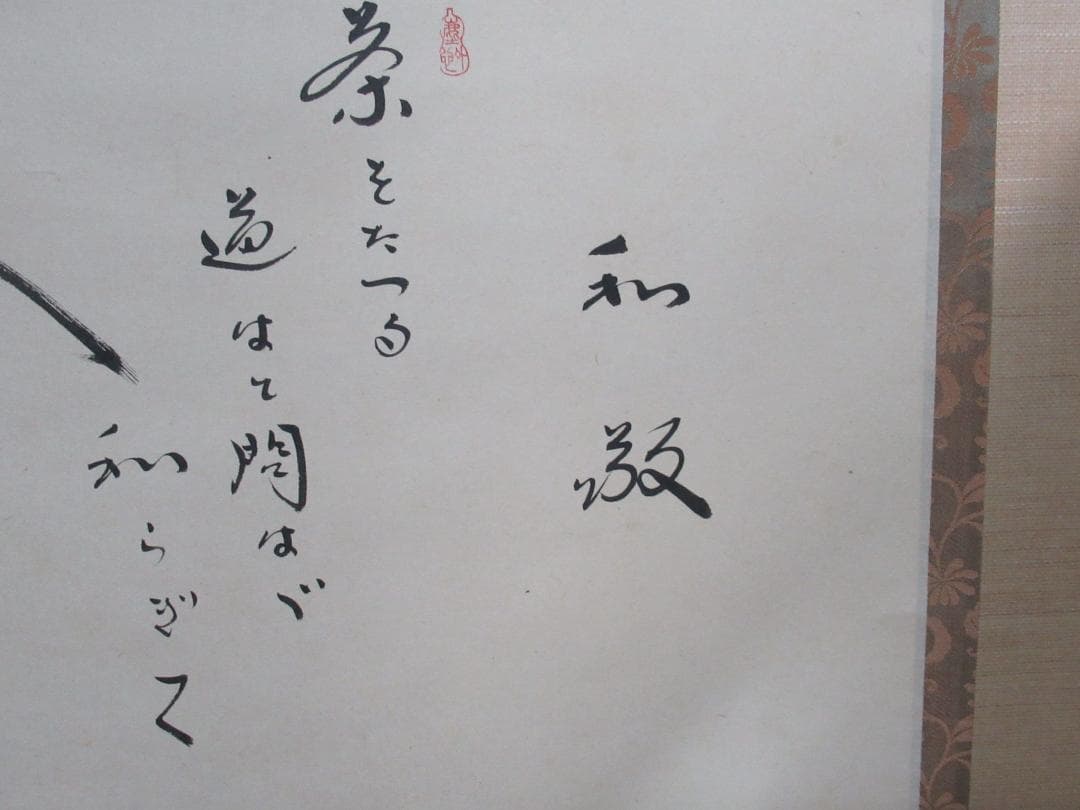 和敬
茶をたつる
道はと問はゞ
和らぎて